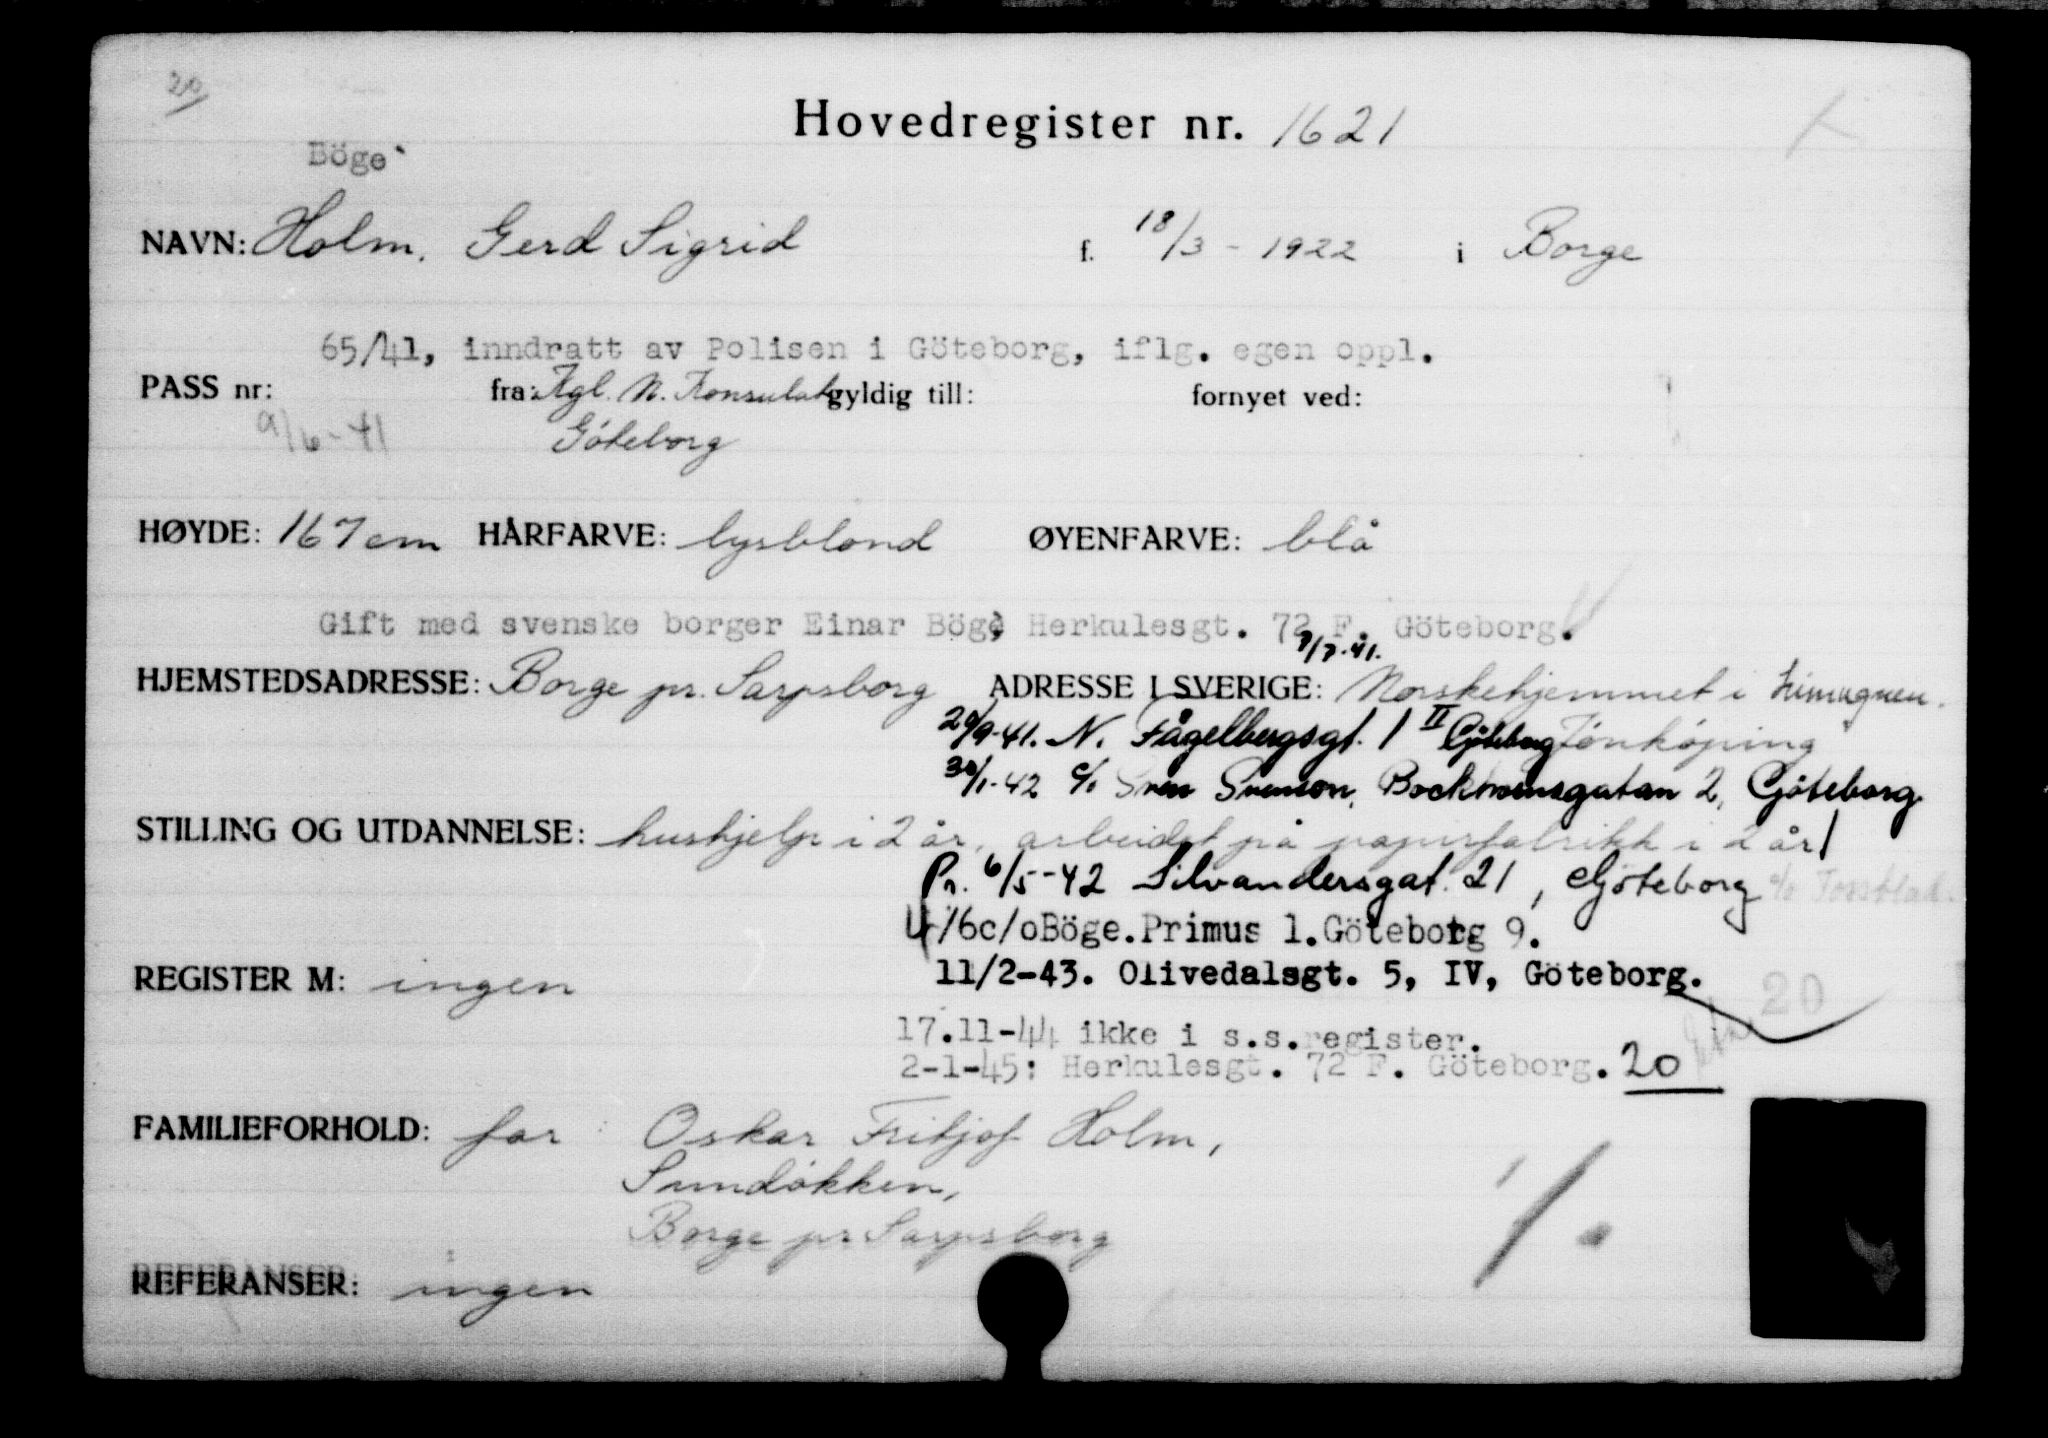 20
Hovedregister nr. 1621
Böge
NAVN: Holm, Gerd Sigrid f. 18/3 - 1922 i Borge
65/41, inndratt av Polisen i Göteborg, iflg. egen oppl.
PASS nr: fra: Kgl. N. Konsulat gyldig till: fornyet ved:
9/6-41 Göteborg
HØYDE: 167 cm HÅRFARVE: lysblond ØYENFARVE: blå
Gift med svenske borger Einar Böge, Herkulesgt. 72 F. Göteborg.
7/7-41.
HJEMSTEDSADRESSE: Borge pr. Sarpsborg ADRESSE I SVERIGE: Norskehjemmet i
29/9-41. N. Fågelbergsgt. 1 II Göteborg Jönköping
30/1-42 c/o Sven Svenson, Göteborg
STILLING OG UTDANNELSE: hushjelp i 2 år, arbeidet på papirfabrikk i 2 år
Pr. 6/5-42 Silvandersgat. 21, Göteborg c/o
4/6c/oBöge.Primus 1.Göteborg 9.
11/2-43. Olivedalsgt. 5, IV, Göteborg.
REGISTER M: ingen
20
17.11-44 ikke i s.s.register.
2-1-45: Herkulesgt. 72 F. Göteborg. 20
FAMILIEFORHOLD: far: Oskar Fritjof Holm,
Sundløkken,
Borge pr Sarpsborg
REFERANSER: ingen